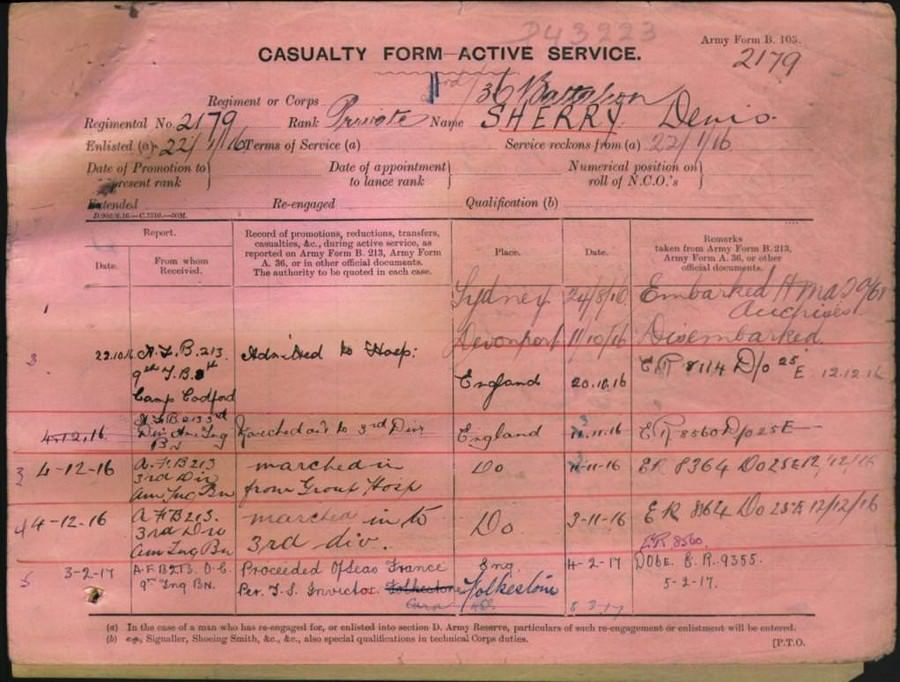 D43223
CASUALTY FORM—ACTIVE SERVICE.
Army Form B. 103.
2179
Regiment or Corps 36 Battalion
Regimental No. 2179 Rank Private Name SHERRY Denis
Enlisted (a) 22/1/16 Terms of Service (a) Service reckons from (a) 22/1/16
Date of Promotion to present rank
Date of appointment to lance rank
Numerical position on roll of N.C.O.'s
Extended Re-engaged Qualification (b)
Report.
Date.
From whom Received.
Record of promotions, reductions, transfers,
casualties, &c., during active service, as
reported on Army Form B. 213, Army Form
A. 36, or in other official documents.
The authority to be quoted in each case.
Place.
Date.
Remarks
taken from Army Form B. 213,
Army Form A. 36, or other
official documents.
1
Sydney 24/8/16 Embarked
Anchises
Devonport 11/10/16 Disembarked
3 22.10.16 B.213.
Camp Codford
Admitted to Hosp:
England 20.10.16 E.R 8114 D/o 25 E. 12.12.16
4.12.16 to 3rd Div England 11.16 E R 8560 D/o 25E
3 4-12-16 A.F.B 213
3rd Div
Bn
marched in
from Group Hosp
Do 11-16 ER 8364 Do 25E 12/12/16
4 4-12-16 A F B 213.
3rd Div
Bn
marched in to
3rd div.
Do 3-11-16 E R 864 Do 25E 12/12/16
E.R 8560
5 3-2-17 A.F.B213. O.C.
9th Tng BN.
Proceeded O/Seas France
Per. T.S. Invicta. Folkestone
Eng
Folkestone
4-2-17 DOBE. E.R. 9355.
5-2-17.
(a) In the case of a man who has re-engaged for, or enlisted into section D. Army Reserve, particulars of such re-engagement or enlistment will be entered.
(b) e.g., Signaller, Shoeing Smith, &c., &c., also special qualifications in technical Corps duties.
[P.T.O.